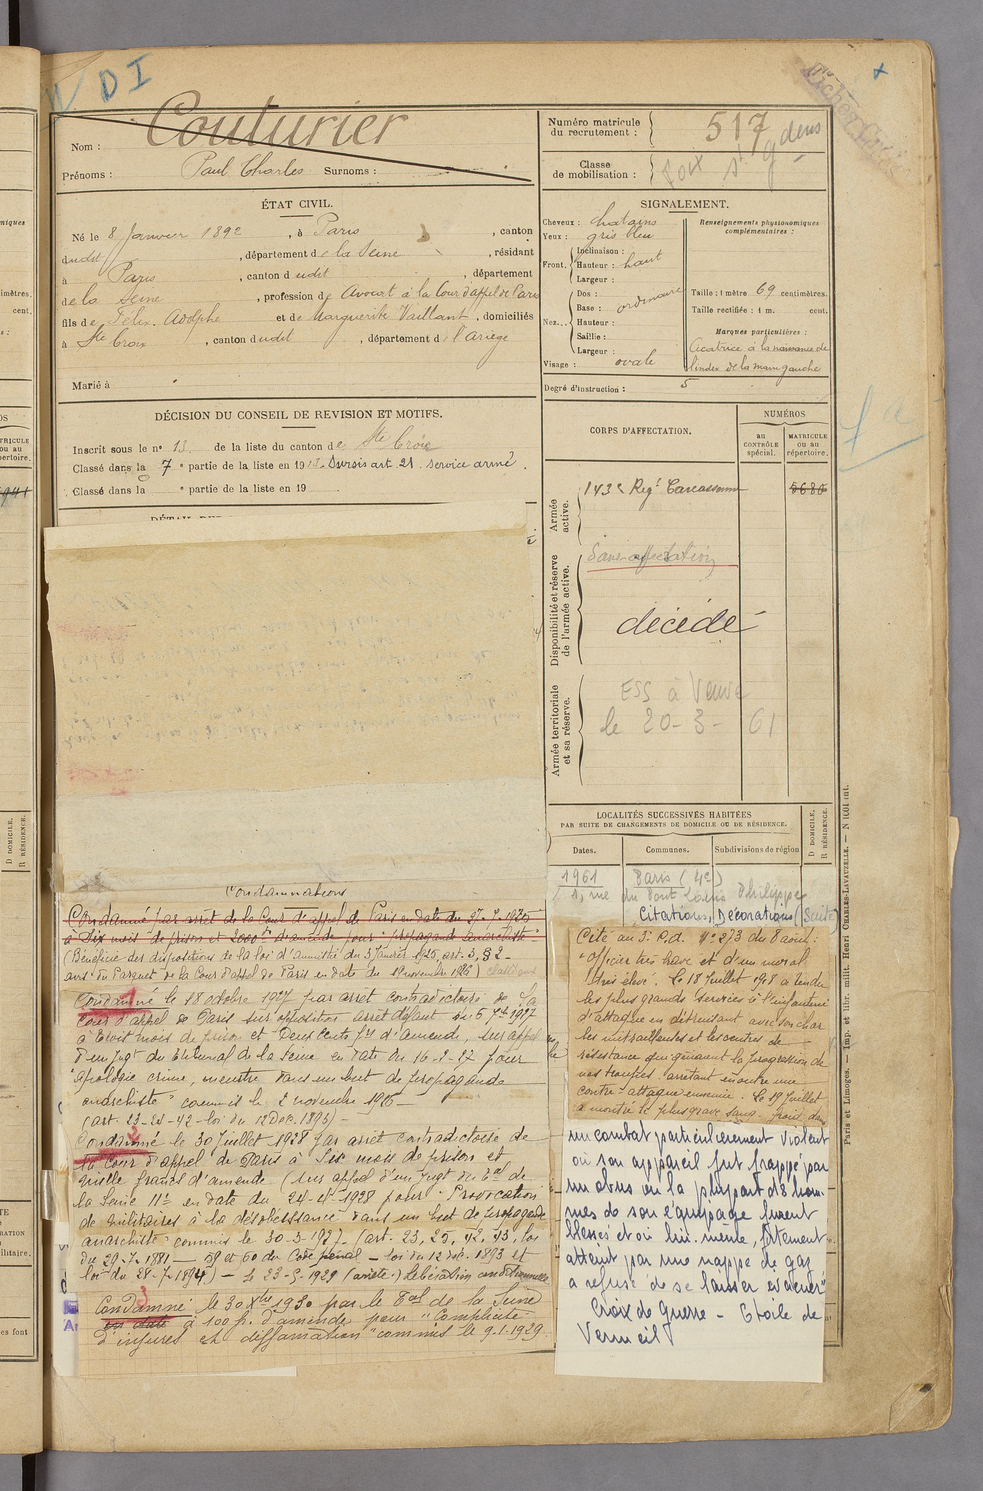 DI
Nom : Couturier
Prénoms : Paul Charles Surnoms :
ÉTAT CIVIL.
Né le 8 Janvier 1892, à Paris, canton
dudit, département de la Seine, résidant
à Paris, canton dudit, département
de la Seine, profession de Avocat à la Cour d'appel de Paris
fils de Félix Adolphe et de Marguerite Vaillant, domiciliés
à Ste Croix, canton dudit, département de l'Ariège
Marié à
DÉCISION DU CONSEIL DE REVISION ET MOTIFS.
Inscrit sous le n° 13 de la liste du canton de Ste Croix
Classé dans la 7e partie de la liste en 1912. Sursis art. 21. service armé.
Classé dans la e partie de la liste en 19
Numéro matricule du recrutement : 517
Classe de mobilisation :
Foix St Gaudens
SIGNALEMENT.
Cheveux : chatains
Yeux : gris bleu
Front.
Inclinaison :
Hauteur : haut
Largeur :
Nez..
Dos :
Base : ordinaire
Hauteur :
Saillie :
Largeur :
Visage : ovale
Renseignements physionomiques complémentaires :
Taille : 1 mètre 69 centimètres.
Taille rectifiée : 1 m. cent.
Marques particulières :
Cicatrice à la naissance de
l'index de la main gauche
Degré d'instruction : 5
CORPS D'AFFECTATION.
NUMÉROS
au CONTRÔLE spécial.
MATRICULE ou au répertoire.
Armée active.
143e Regt Carcassonne
Disponibilité et réserve de l'armée active.
Sans affectation
décédé
Armée territoriale et sa réserve.
le 20-3-61
LOCALITÉS SUCCESSIVES HABITÉES
PAR SUITE DE CHANGEMENTS DE DOMICILE OU DE RÉSIDENCE.
Dates.
Communes.
Subdivisions de région
D DOMICILE.
R RÉSIDENCE.
1961 Paris (4e)
rue du Pont Louis Philippe
Citations, Décorations (Suite)
Cité au 3e C.A. N° 273 du 8 août :
"Officier très brave et d'un moral
très élevé. Le 18 Juillet 1918 a rendu
les plus grands services à l'infanterie
d'attaque en détruisant avec son char
les mitrailleuses et les centres de
résistance qui gênaient la progression de
nos troupes arrêtant en outre une
contre-attaque ennemie. Le 19 Juillet
a montré le plus grave sang-froid dans
un combat particulièrement violent
où son appareil fut frappé par
un obus où la plupart des hom-
mes de son équipage furent
blessés et où lui-même, fortement
atteint par une nappe de gaz
a refusé de se laisser évacuer"
Croix de guerre - Etoile de
Vermeil
Condamnations
Condamné par arrêt de la Cour d'appel de Paris en date du
à Six mois de prison et 2000f d'amende pour "propagande anarchiste"
(Bénéficie des dispositions de la loi d'amnistie du 3 Janvier 1925, art. 3, § 2 -
avis du Parquet de la Cour d'Appel de Paris en date du novembre 1926)
Condamné le 18 octobre 1927 par arrêt contradictoire de la
Cour d'appel de Paris sur opposition arrêt défaut du 5 1927
à trois mois de prison et Deux cents frs d'amende, sur appel
d'un jugt du tribunal de la Seine en date du 16-2-27 pour
"apologie crime, meurtre dans un but de propagande
anarchiste" commis le 2 novembre 1926 -
(art. 23-24-42 - loi du 12 Déc. 1893) -
Condamné le 30 Juillet 1928 par arrêt contradictoire de
la Cour d'appel de Paris à Six mois de prison et
mille francs d'amende (sur appel d'un jugt du tal de
la Seine 11e en date du 24-4-1928 pour "Provocation
de militaires à la désobéissance dans un but de propagande
anarchiste" commis le 30-3-1927 - (art. 23, 25, 42, 43, loi
du 29-7-1881 - 59 et 60 du Code pénal - loi du 12 déc. 1893 et
loi du 28-7-1894) - Libération conditionnelle
Condamné le 30 Xbre 1930 par le tal de la Seine
en date à 100 f. d'amende pour "Complicité
d'injures et diffamation" commis le 9.1.1929
Paris et Limoges. — Imp. et libr. milit. Henri CHARLES-LAVAUZELLE.